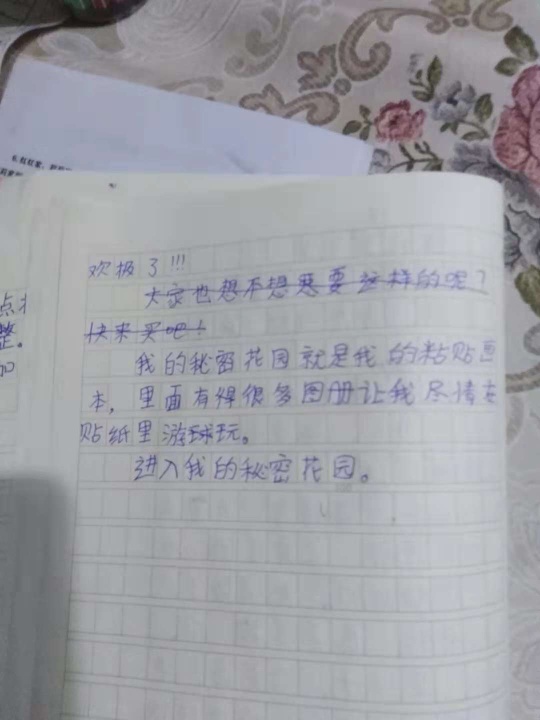 欢极了!!!
大家也想不想要这样的呢？
快来买吧！
我的秘密花园就是我的粘贴画
本，里面有得很多图册让我尽情在
贴纸里游球玩。
进入我的秘密花园。
点
整。
加